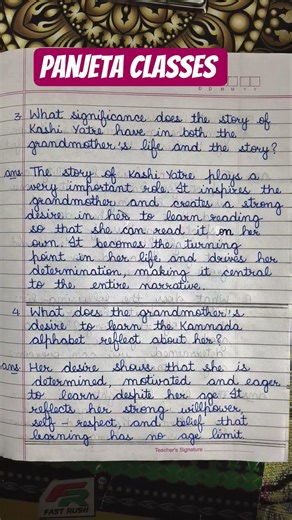 PANJETA CLASSES
D D M M Y Y
3 What significance does the story of
Kashi Yatre have in both the
grandmother's life and the story?
ans The story of Kashi Yatre plays a
very important role. It inspires the
grandmother and creates a strong
desire in hers to learn reading
so that she can read it on her
own. It becomes the turning
point in her life and drives her
determination, making it central
to the entire narrative.
4 What does the grandmother's
desire to learn the Kannada
alphabet reflect about her?
ans Her desire shows that she is
determined, motivated and eager
to learn despite her age. It
reflects her strong willpower,
self-respect, and belief that
learning has no age limit
Teacher's Signature
FAST RUSH